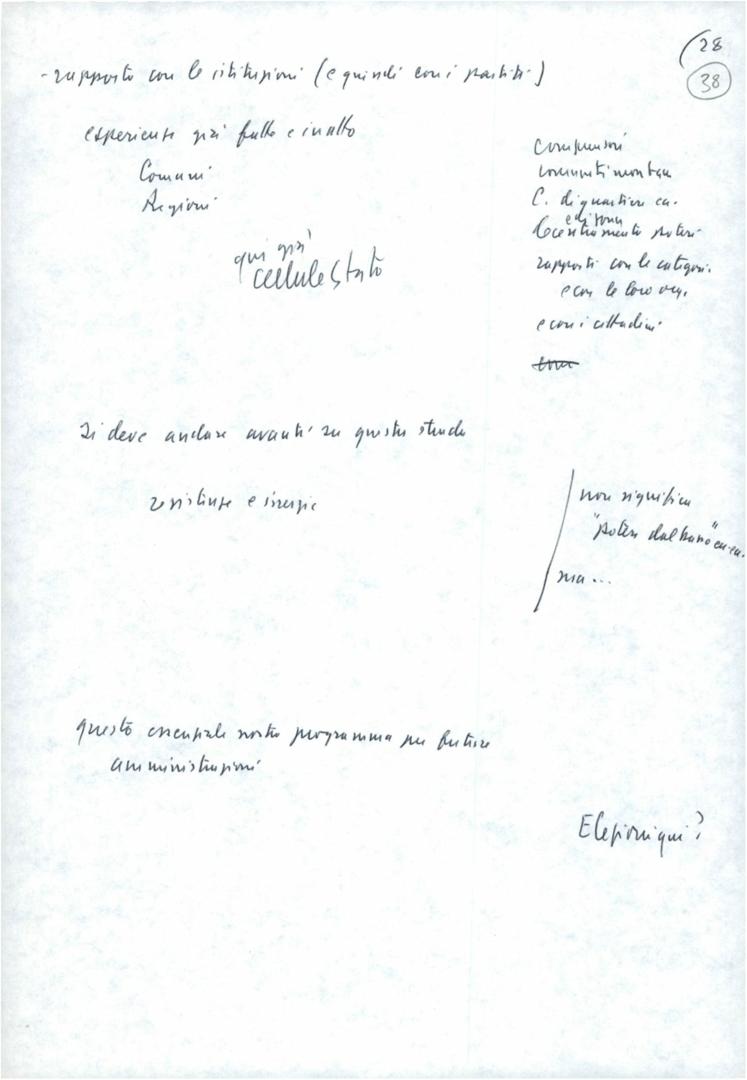 (28
38
- rapporto con le istituzioni (e quindi con i partiti)
esperienze già fatte e in atto
Comuni
Regioni
qui già
cellule Stato
comprensori
comunità montane
C. di quartiere ec.
e di zona
decentramento poteri
rapporti con le categori.
e con le loro org.
e con i cittadini
Si deve andare avanti su questa strada
resistenze e inerzie
non significa
"potere dal basso" ec. ec.
ma...
questo essenziale nostro programma per future
amministrazioni
Elezioni qui?